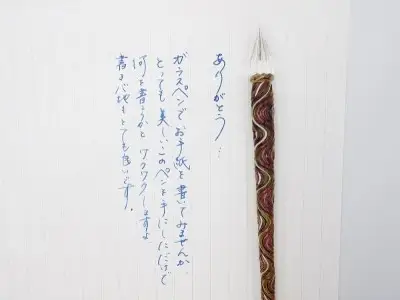 ありがとう…
ガラスペンでお手紙を書いてみませんか。
とっても美しいこのペンを手にしただけで
何を書こうかとワクワクしますよ
書き心地もとても良いです。